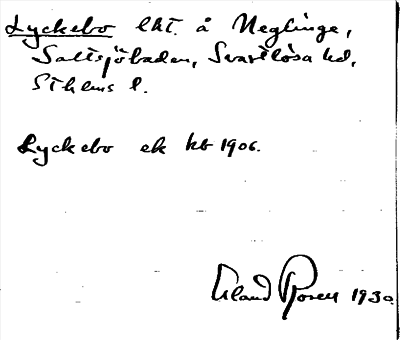 Lyckebo lht. å Neglinge,
Saltsjöbaden, Svartlösa hd,
Sthlms l.
Lyckebo ek kb 1906.
Erland Rosell 1930